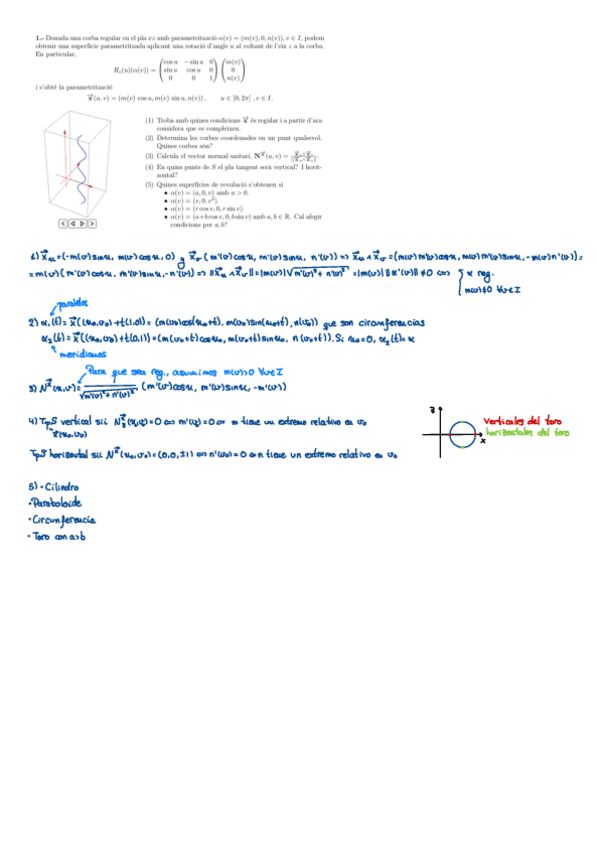 1.- Donada una corba regular en el pla xz amb parametrització α(v) = (m(v), 0, n(v)), v ∈ I, podem
obtenir una superfície parametritzada aplicant una rotació d'angle u al voltant de l'eix z a la corba.
En particular,
R_z(u)(α(v)) = (cos u −sin u 0 / sin u cos u 0 / 0 0 1) (m(v) / 0 / n(v))
i s'obté la parametrització
x⃗(u, v) = (m(v) cos u, m(v) sin u, n(v)), u ∈ ]0, 2π[, v ∈ I.
(1) Troba amb quines condicions x⃗ és regular i a partir d'ara
considera que es compleixen.
(2) Determina les corbes coordenades en un punt qualsevol.
Quines corbes són?
(3) Calcula el vector normal unitari, N^x⃗(u, v) = x⃗_u∧x⃗_v / ||x⃗_u∧x⃗_v||.
(4) En quins punts de S el pla tangent serà vertical? I horit-
zontal?
(5) Quines superfícies de revolució s'obtenen si
• α(v) = (a, 0, v) amb a > 0.
• α(v) = (v, 0, v²).
• α(v) = (r cos v, 0, r sin v).
• α(v) = (a+b cos v, 0, b sin v) amb a, b ∈ ℝ. Cal afegir
condicions per a, b?
1) x⃗_u = (-m(v)sinu, m(v)cosu, 0) y x⃗_v (m'(v)cosu, m'(v)sinu, n'(v)) => x⃗_u ∧ x⃗_v = (m(v)n'(v)cosu, m(v)n'(v)sinu, -m(v)m'(v)) =
= m(v)(n'(v)cosu, n'(v)sinu, -m'(v)) => ||x⃗_u ∧ x⃗_v|| = |m(v)| √(m'(v)² + n'(v)²) = |m(v)| ||α'(v)|| ≠ 0 <=> { α reg.
m(v) ≠ 0 ∀v∈I
paralelos
2) α₁(t) = x⃗((u₀,v₀)+t(1,0)) = (m(v₀)cos(u₀+t), m(v₀)sin(u₀+t), n(v₀)) que son circunferencias
α₂(t) = x⃗((u₀,v₀)+t(0,1)) = (m(v₀+t)cosu₀, m(v₀+t)sinu₀, n(v₀+t)). Si u₀=0, α₂(t)=α
meridianos
Para que sea reg., asumimos m(v)>0 ∀v∈I
3) N^x⃗(u,v) = 1/√(m'(v)²+n'(v)²) (n'(v)cosu, n'(v)sinu, -m'(v))
4) TpS vertical sii N₃^x⃗(u,v)=0 <=> m'(v)=0 <=> m tiene un extremo relativo en v₀
x⃗(u₀,v₀)
z
x
Verticales del toro
horizontales del toro
TpS horizontal sii N^x⃗(u₀,v₀) = (0,0,±1) <=> n'(v₀)=0 <=> n tiene un extremo relativo en v₀
5) • Cilindro
• Paraboloide
• Circunferencia
• Toro con a>b